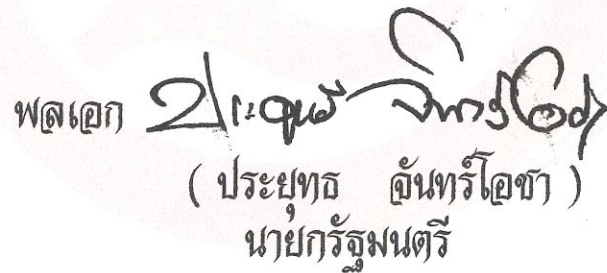 พลเอก ประยุทธ์ จันทร์โอชา
( ประยุทธ จันทร์โอชา )
นายกรัฐมนตรี